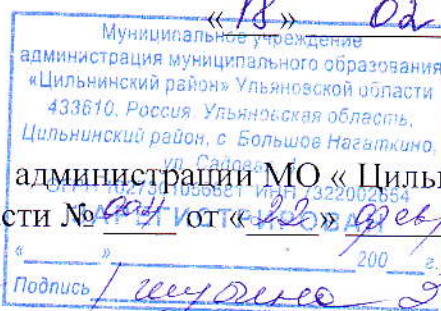 « 18 » 02
Муниципальное учреждение
администрация муниципального образования
«Цильнинский район» Ульяновской области
433610, Россия Ульяновская область,
Цильнинский район, с. Большое Нагаткино,
ул. Садовая
администрации МО « Цильн
ЗАРЕГИСТРИРОВАН
сти № 004 от « 22 » фев
« » 200 г.
Подпись